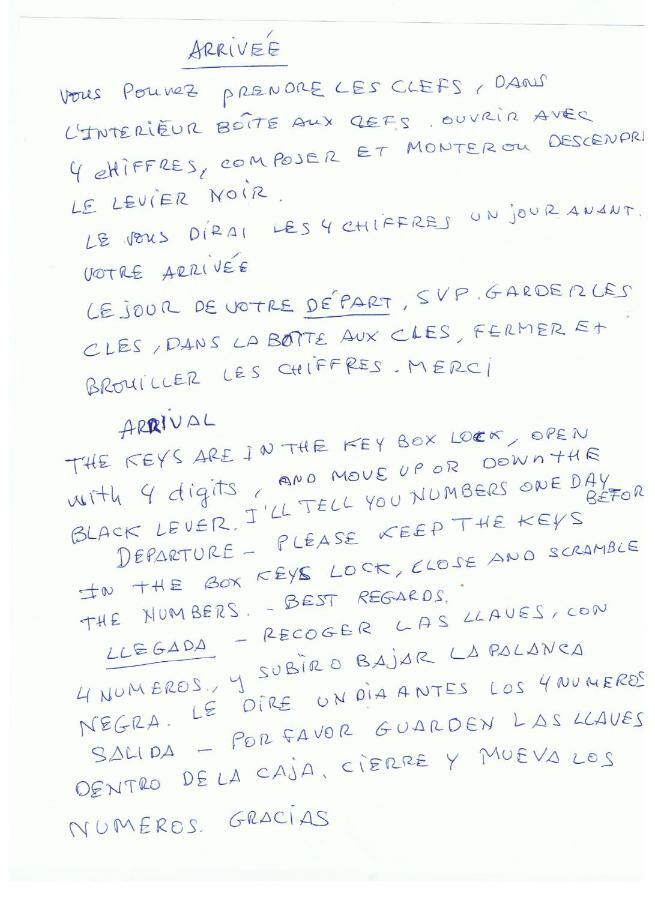 ARRIVEÉ
Vous Pouvez PRENDRE LES CLEFS, DANS
L'INTERIEUR BOÎTE AUX CLEFS. OUVRIR AVEC
4 CHIFFRES, COMPOSER ET MONTER OU DESCENDRE
LE LEVIER NOIR.
LE VOUS DIRAI LES 4 CHIFFRES UN JOUR AVANT.
VOTRE ARRIVÉE
LE JOUR DE VOTRE DÉPART, SVP. GARDER LES
CLES, DANS LA BOÎTE AUX CLES, FERMER ET
BROUILLER LES CHIFFRES. MERCI
ARRIVAL
THE KEYS ARE IN THE KEY BOX LOCK, OPEN
with 4 digits, AND MOVE UP OR DOWN THE
BLACK LEVER. I'LL TELL YOU NUMBERS ONE DAY BEFOR
DEPARTURE - PLEASE KEEP THE KEYS
IN THE BOX KEYS LOCK, CLOSE AND SCRAMBLE
THE NUMBERS. - BEST REGARDS.
LLEGADA - RECOGER LAS LLAVES, CON
4 NUMEROS., Y SUBIR O BAJAR LA PALANCA
NEGRA. LE DIRE UN DIA ANTES LOS 4 NUMEROS
SALIDA - POR FAVOR GUARDEN LAS LLAVES
DENTRO DE LA CAJA. CIERRE Y MUEVA LOS
NUMEROS. GRACIAS